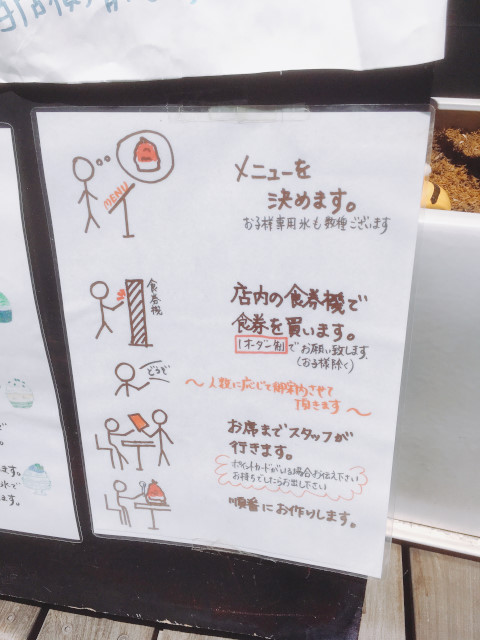 MENU
メニューを
決めます。
お子様専用氷も数種ございます
食券機
店内の食券機で
食券を買います。
1オーダー制でお願い致します
(お子様除く)
どうぞ
〜人数に応じて御案内させて
頂きます〜
お席までスタッフが
行きます。
ポイントカードがいる場合お伝え下さい
お持ちでしたらお出し下さい
順番にお作りします。
ます。